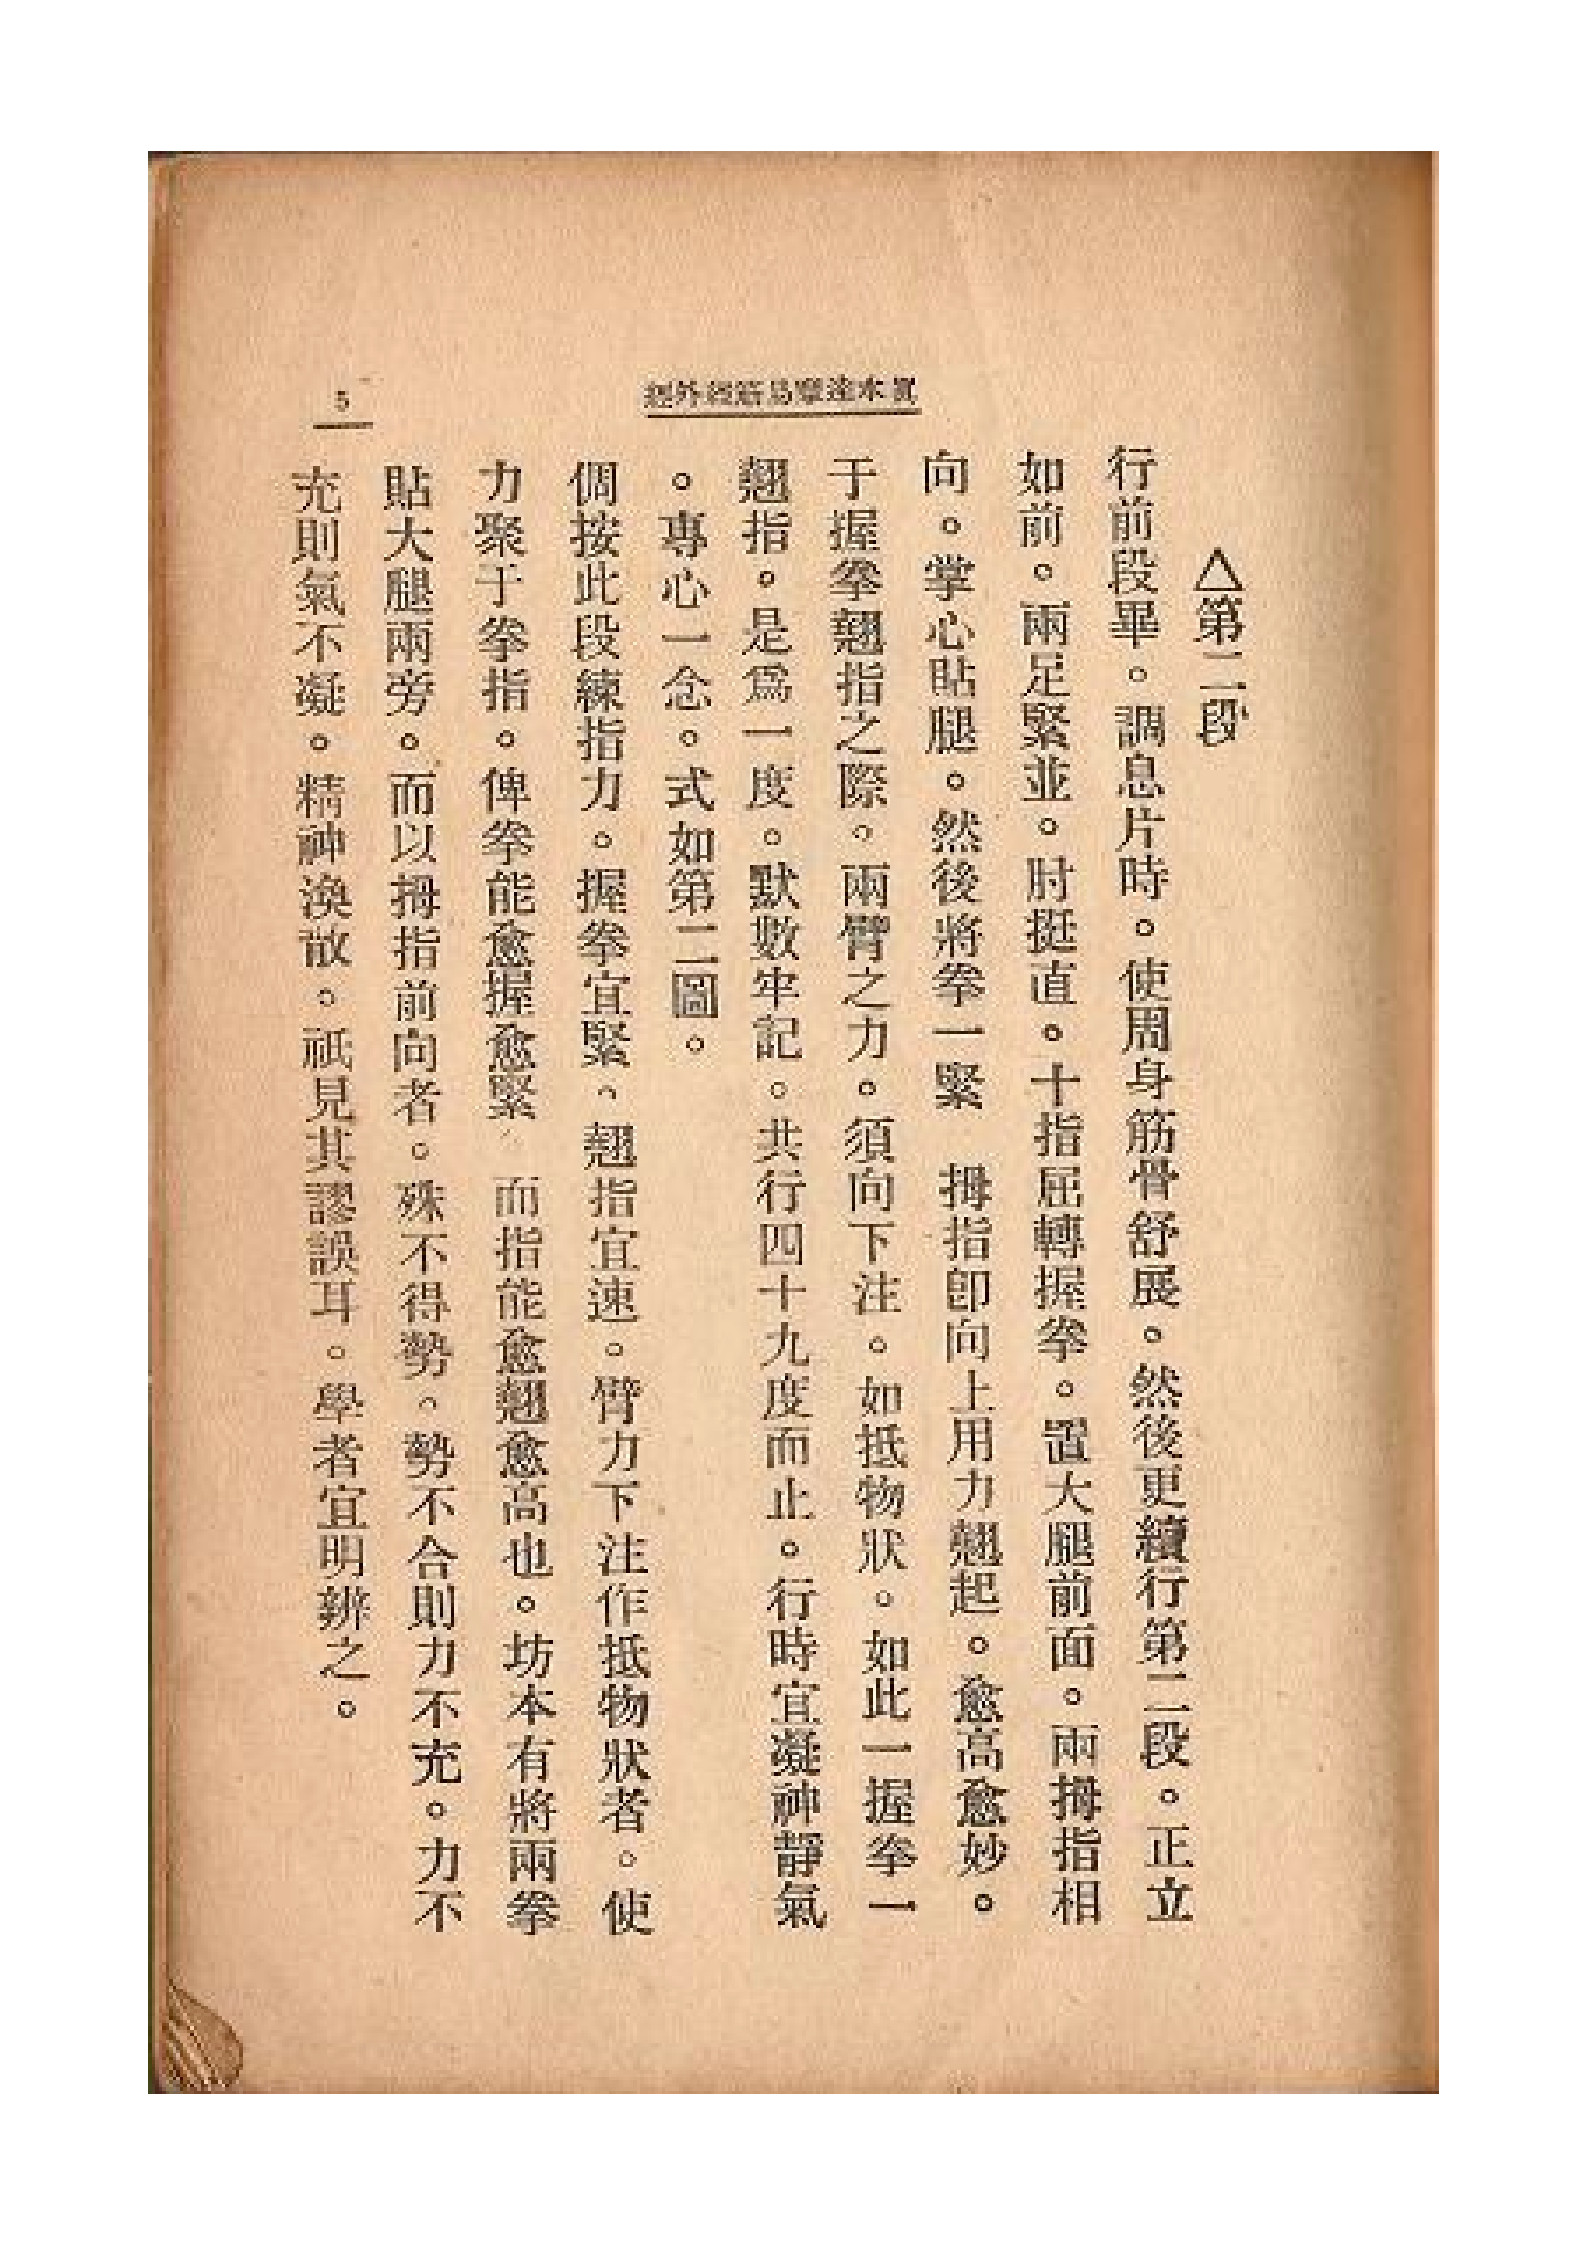 眞本達摩易筋經外經
5
△第二段
行前段畢。調息片時。使周身筋骨舒展。然後更續行第二段。正立
如前。兩足緊並。肘挺直。十指屈轉握拳。置大腿前面。兩拇指相
向。掌心貼腿。然後將拳一緊　拇指卽向上用力翹起。愈高愈妙。
于握拳翹指之際。兩臂之力。須向下注。如抵物狀。如此一握拳一
翹指。是爲一度。默數牢記。共行四十九度而止。行時宜凝神靜氣
。專心一念。式如第二圖。
倜按此段練指力。握拳宜緊、翹指宜速。臂力下注作抵物狀者。使
力聚于拳指。俾拳能愈握愈緊。而指能愈翹愈高也。坊本有將兩拳
貼大腿兩旁。而以拇指前向者。殊不得勢。勢不合則力不充。力不
充則氣不凝。精神渙散。祇見其謬誤耳。學者宜明辨之。